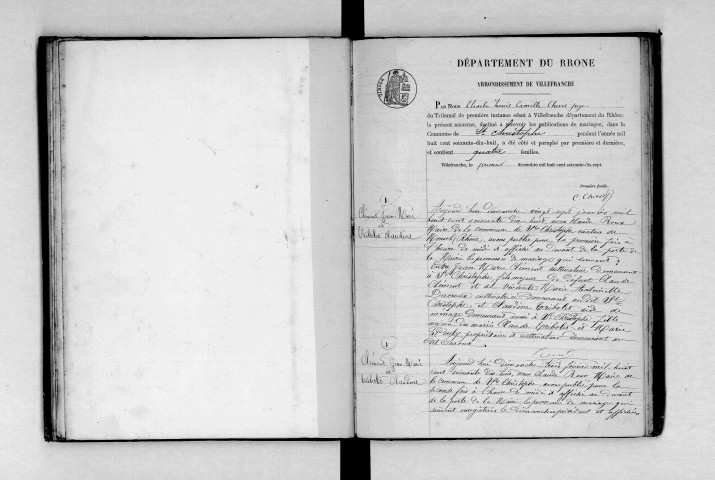 DÉPARTEMENT DU RHONE
ARRONDISSEMENT DE VILLEFRANCHE
PAR NOUS Charles Louis Camille juge
du Tribunal de première instance séant à Villefranche département du Rhône,
le présent registre, destiné à recevoir les publications de mariages, dans la
Commune de St Christophe pendant l'année mil
huit cent soixante-dix-huit, a été coté et paraphé par première et dernière,
et contient quatre feuilles.
Villefranche, le décembre mil huit cent soixante-dix-sept.
Première feuille.
1
Jean Marie
et
Claudine
Aujourd'hui dimanche vingt sept janvier mil
huit cent soixante dix huit nous Claude Roux
Maire de la commune de St Christophe canton de
Monsols (Rhône), avons publié pour la première fois à
l'heure de midi et affiché au devant de la porte de
la Mairie la promesse de mariage qui suivant :
Entre Jean Marie cultivateur demeurant
à St Christophe fils majeur de défunt Claude
et de vivante Marie
Ducroux cultivatrice demeurant au dit St
Christophe et Claudine
ménage demeurant aussi à St Christophe fille
mineure de mariés Claude et Marie
propriétaire et cultivateur demeurant au
dit
1
Jean Marie
et
Claudine
Aujourd'hui dimanche trois février mil huit
cent soixante dix huit, nous Claude Roux Maire de
la commune de St Christophe avons publié pour la
seconde fois à l'heure de midi et affiché au devant
de la porte de la Mairie la promesse de mariage qui
dimanche précédent et affichée